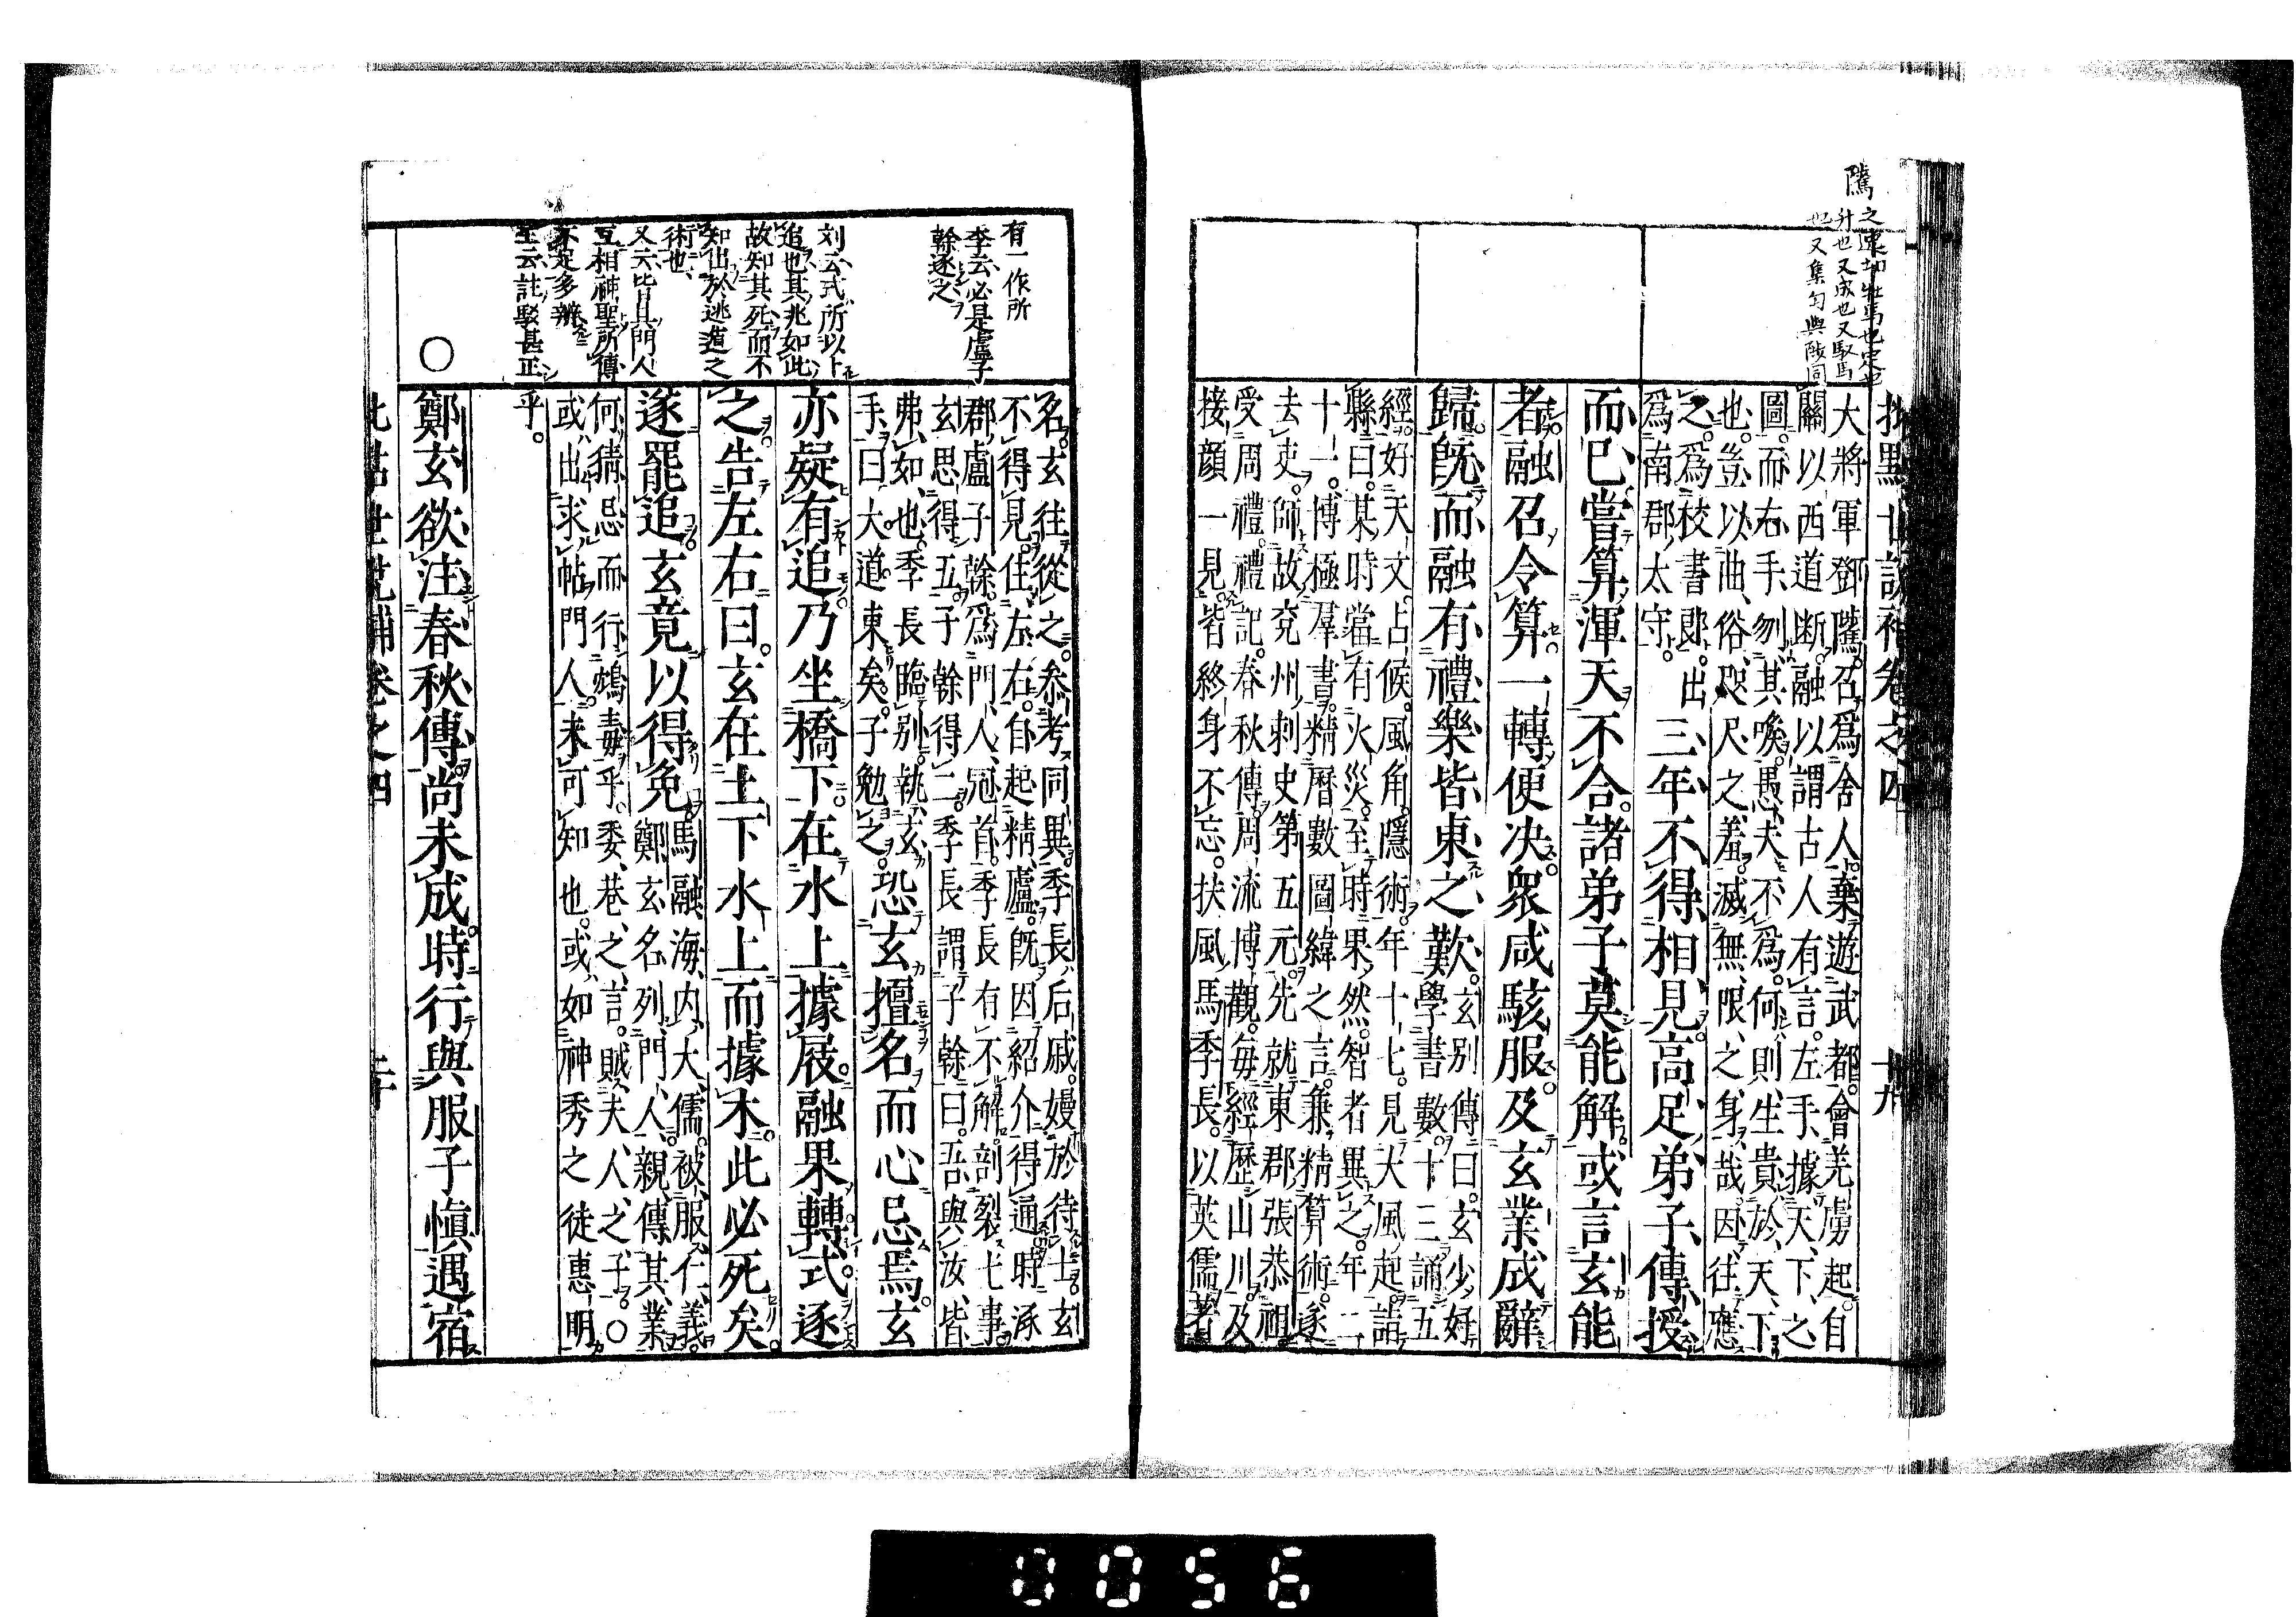 騭
之速切牡馬也定也
升也又成也又馭馬
也又集勻與陟同
批點世說補卷之四 十九
大將軍鄧騭。召爲舍人。棄遊武都。會羌虜起。自
關以西道断。融以謂古人有言。左手據天下之
圖。而右手刎其喉。愚夫不爲。何則生貴於天下
也。豈以曲俗咫尺之羞。滅無限之身哉。因往應
之。爲校書郎。出
爲南郡太守。
三年不得相見。高足弟子傳授
而已。嘗算渾天不合。諸弟子莫能解。或言玄能
者。融召令算。一轉便决。衆咸駭服。及玄業成辭
歸。旣而融有禮樂皆東之歎。
玄別傳曰。玄少好
學書數。十三誦五
經。好天文。占候。風角。隱術。年十七。見大風起。詣
縣曰。某時當有火災。至時果然。智者異之。年二
十一。博極羣書。精曆數圖緯之言。兼精算術。遂
去吏。師故兗州刺史第五元。先就東郡張恭祖。
受周禮。禮記。春秋傳。周流博觀。每經歷山川。及
接顔一見。皆終身不忘。扶風馬季長。以英儒著
有一作所
李云必是盧子
幹逐之
刘云式所以卜
追也其兆如此
故知其死而不
知出於逃遁之
術也
又云皆其門人
互相神聖所傳
不足多辨
王云註駁甚正
名。玄往從之。叅考同異。季長后戚。嫚於待士。玄
不得見。住左右。自起精廬。旣因紹介得通。時涿
郡盧子幹。爲門人冠首。季長有不解剖裂七事。
玄思得五。子幹得二。季長謂子幹曰。吾與汝皆
弗如也。季長臨別。執玄
手曰。大道東矣。子勉之。
恐玄擅名而心忌焉。玄
亦疑有追。乃坐橋下。在水上據屐。融果轉式逐
之。告左右曰。玄在土下水上而據木。此必死矣。
遂罷追。玄竟以得免。
馬融海内大儒。被服仁義。
鄭玄名列門人。親傳其業。
何猜忌而行鴆毒乎。委巷之言。賊夫人之子。○
或出求帖門人。未可知也。或如神秀之徒惠明
乎。
○
鄭玄欲注春秋傳。尚未成。時行與服子愼遇宿
批點世說補卷之四 二十
0056